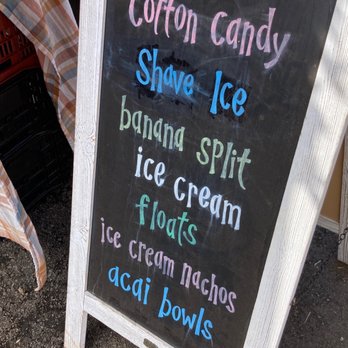 Cotton Candy
Shave Ice
banana split
ice cream
floats
ice cream nachos
acai bowls